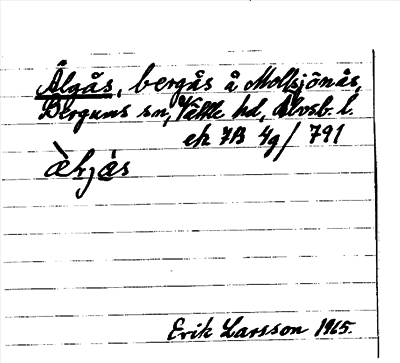 Älgås, bergås å Mollsjönäs,
Bergums sn, Vättle hd, Älvsb. l.
ek 7B 4g/ 791
Erik Larsson 1965.